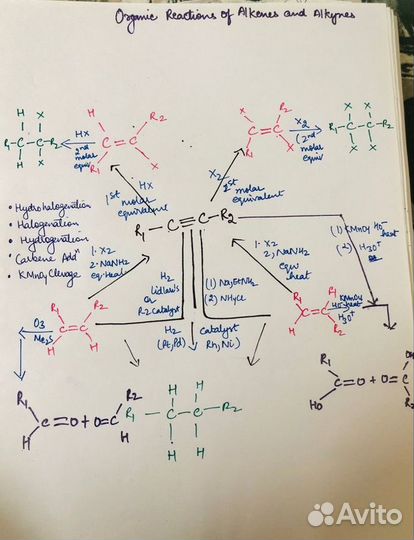 Organic Reactions of Alkenes and Alkynes
H X
R1-C-C-R2
X H
HX
2nd
molar
equiv
H R2
C=C
R1 X
HX
1st
molar
equivalent
X R2
C=C
R1 X
X2
1st molar
equivalent
X2
(2nd
molar
equiv
X X
R1-C-C-R2
X X
R1-C≡C-R2
• Hydrohalogenation
• Halogenation
• Hydrogenation
• "Carbene Add"
• KMnO4 Clevage
1. X2
2. NaNH2
eq. heat
H2
Lindlar's
or
P-2 catalyst
(1) Na, EtNH2
(2) NH4Cl
1. X2
2) NaNH2
equiv
heat
(1) KMnO4 HO-
heat
(2) H3O+
R1 R2
C=C
H H
O3
Me2S
H2 catalyst
(Pt, Pd) Rh, Ni)
H R2
C=C
R1 H
KMnO4
HO- heat
H3O+
R1 R2
C=O + O=C
H H
H H
R1-C-C-R2
H H
R1 OH
C=O + O=C
HO R2
Avito